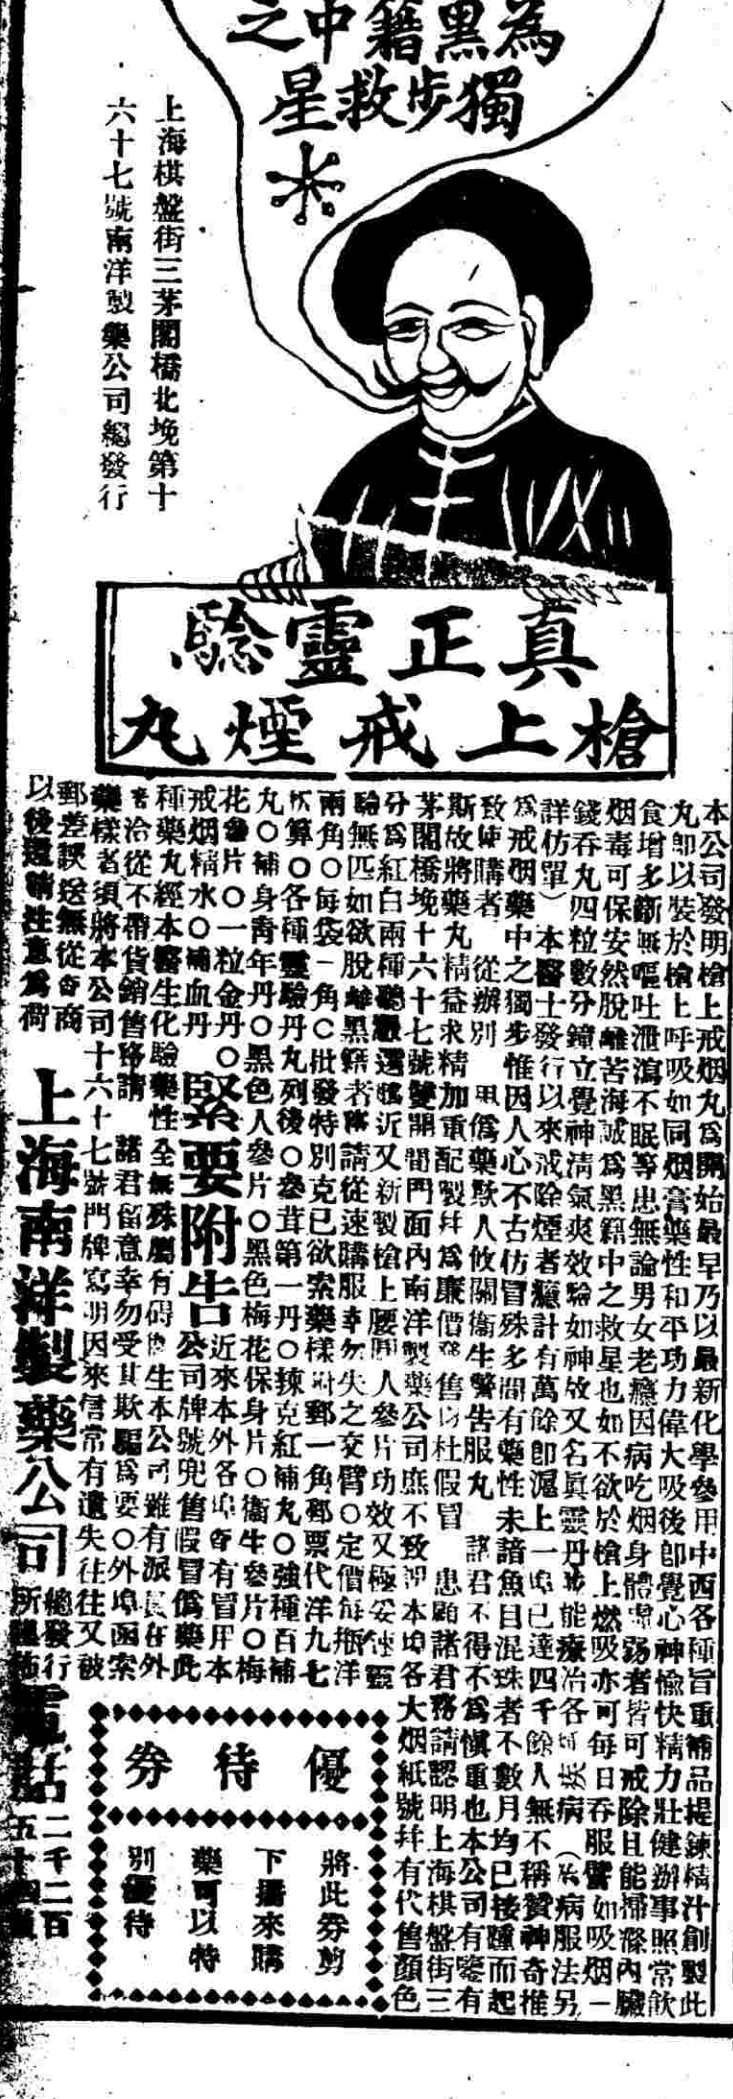 為黑籍中之
獨步救星
上海棋盤街三茅閣橋北堍第十
六十七號南洋製藥公司總發行
真正靈驗
槍上戒煙丸
本公司發明槍上戒烟丸為開始最早乃以最新化學參用中西各種旨重補品提鍊精汁創製此
丸卽以裝於槍上呼吸如同烟膏藥性和平功力偉大吸後卽覺心神愉快精力壯健辦事照常飲
食增多斷無嘔吐泄瀉不眠等患無論男女老癮因病吃烟身體虛弱者皆可戒除且能掃滌內臟
烟毒可保安然脫離苦海誠為黑籍中之救星也如不欲於槍上燃吸亦可每日吞服譬如吸烟一
錢吞丸四粒數分鐘立覺神淸氣爽效驗如神故又名眞靈丹能療治各病（病服法另
詳仿單）本醫士發行以來戒除煙者癮計有萬餘卽滬上一埠已達四千餘人無不稱贊神奇推
為戒烟藥中之獨步惟因人心不古仿冒殊多間有藥性未諳魚目混珠者不數月均已接踵而起
致使購者從辦別用僞藥欺人攸關衞生警告服丸諸君不得不為愼重也本公司有鑒有
斯故將藥丸精益求精加重配製幷為廉價發售以杜假冒惠顧諸君務請認明上海棋盤街三
茅閣橋堍十六十七號雙開間門面內南洋製藥公司庶不致誤本埠各大烟紙號幷有代售顏色
分為紅白兩種聽選購近又新製槍上腰圓人參片功效又極妥靈
驗無匹如欲脫離黑籍者務請從速購服幸勿失之交臂○定價每瓶洋
兩角○每袋一角○批發特別克已欲索藥樣附郵一角郵票代洋九七
折算○各種靈驗丹丸列後○參茸第一丹○揀克紅補丸○強種百補
丸○補身靑年丹○黑色人參片○黑色梅花保身片○衞生參片○梅
花參片○一粒金丹○
戒烟精水○補血丹
緊要附告
近來本外各埠有冒用本
公司牌號兜售假冒僞藥此
種藥丸經本醫生化驗藥性全無殊屬有碍衞生本公司雖有派員在外
接洽從不帶貨銷售務請諸君留意幸勿受其欺騙為要○外埠函索
藥樣者須將本公司十六十七號門牌寫明因來信常有遺失往往又被
郵差誤送無從查商
以後還請注意為荷
上海南洋製藥公司
總發行
所
電話
二千二百
五十四號
優待券
將此券剪
下攜來購
藥可以特
別優待